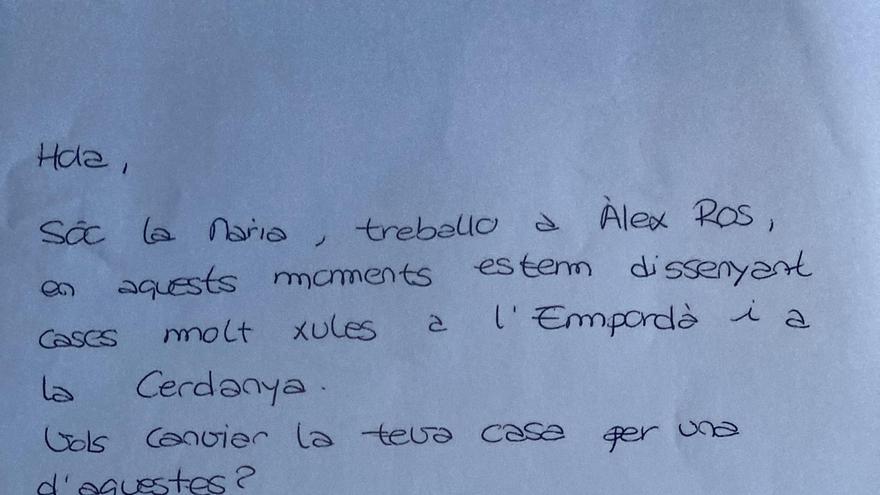 Hola,
Sóc la Maria, treballo a Àlex Ros,
en aquests moments estem dissenyant
cases molt xules a l'Empordà i a
la Cerdanya.
Vols canviar la teva casa per una
d'aquestes?